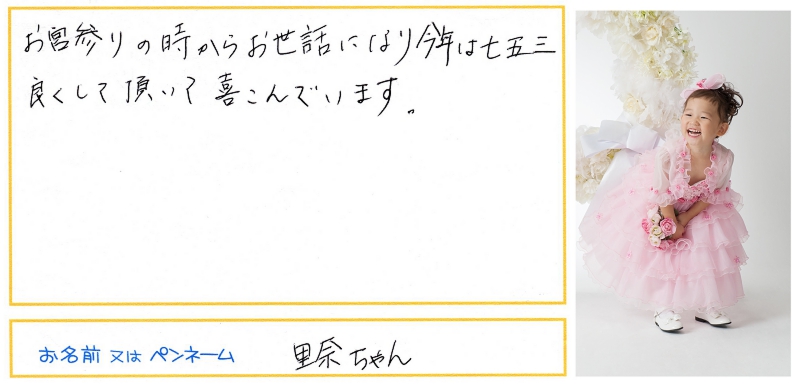 お宮参りの時からお世話になり今年は七五三
良くして頂いて喜こんでいます。
お名前 又は ペンネーム 里奈ちゃん